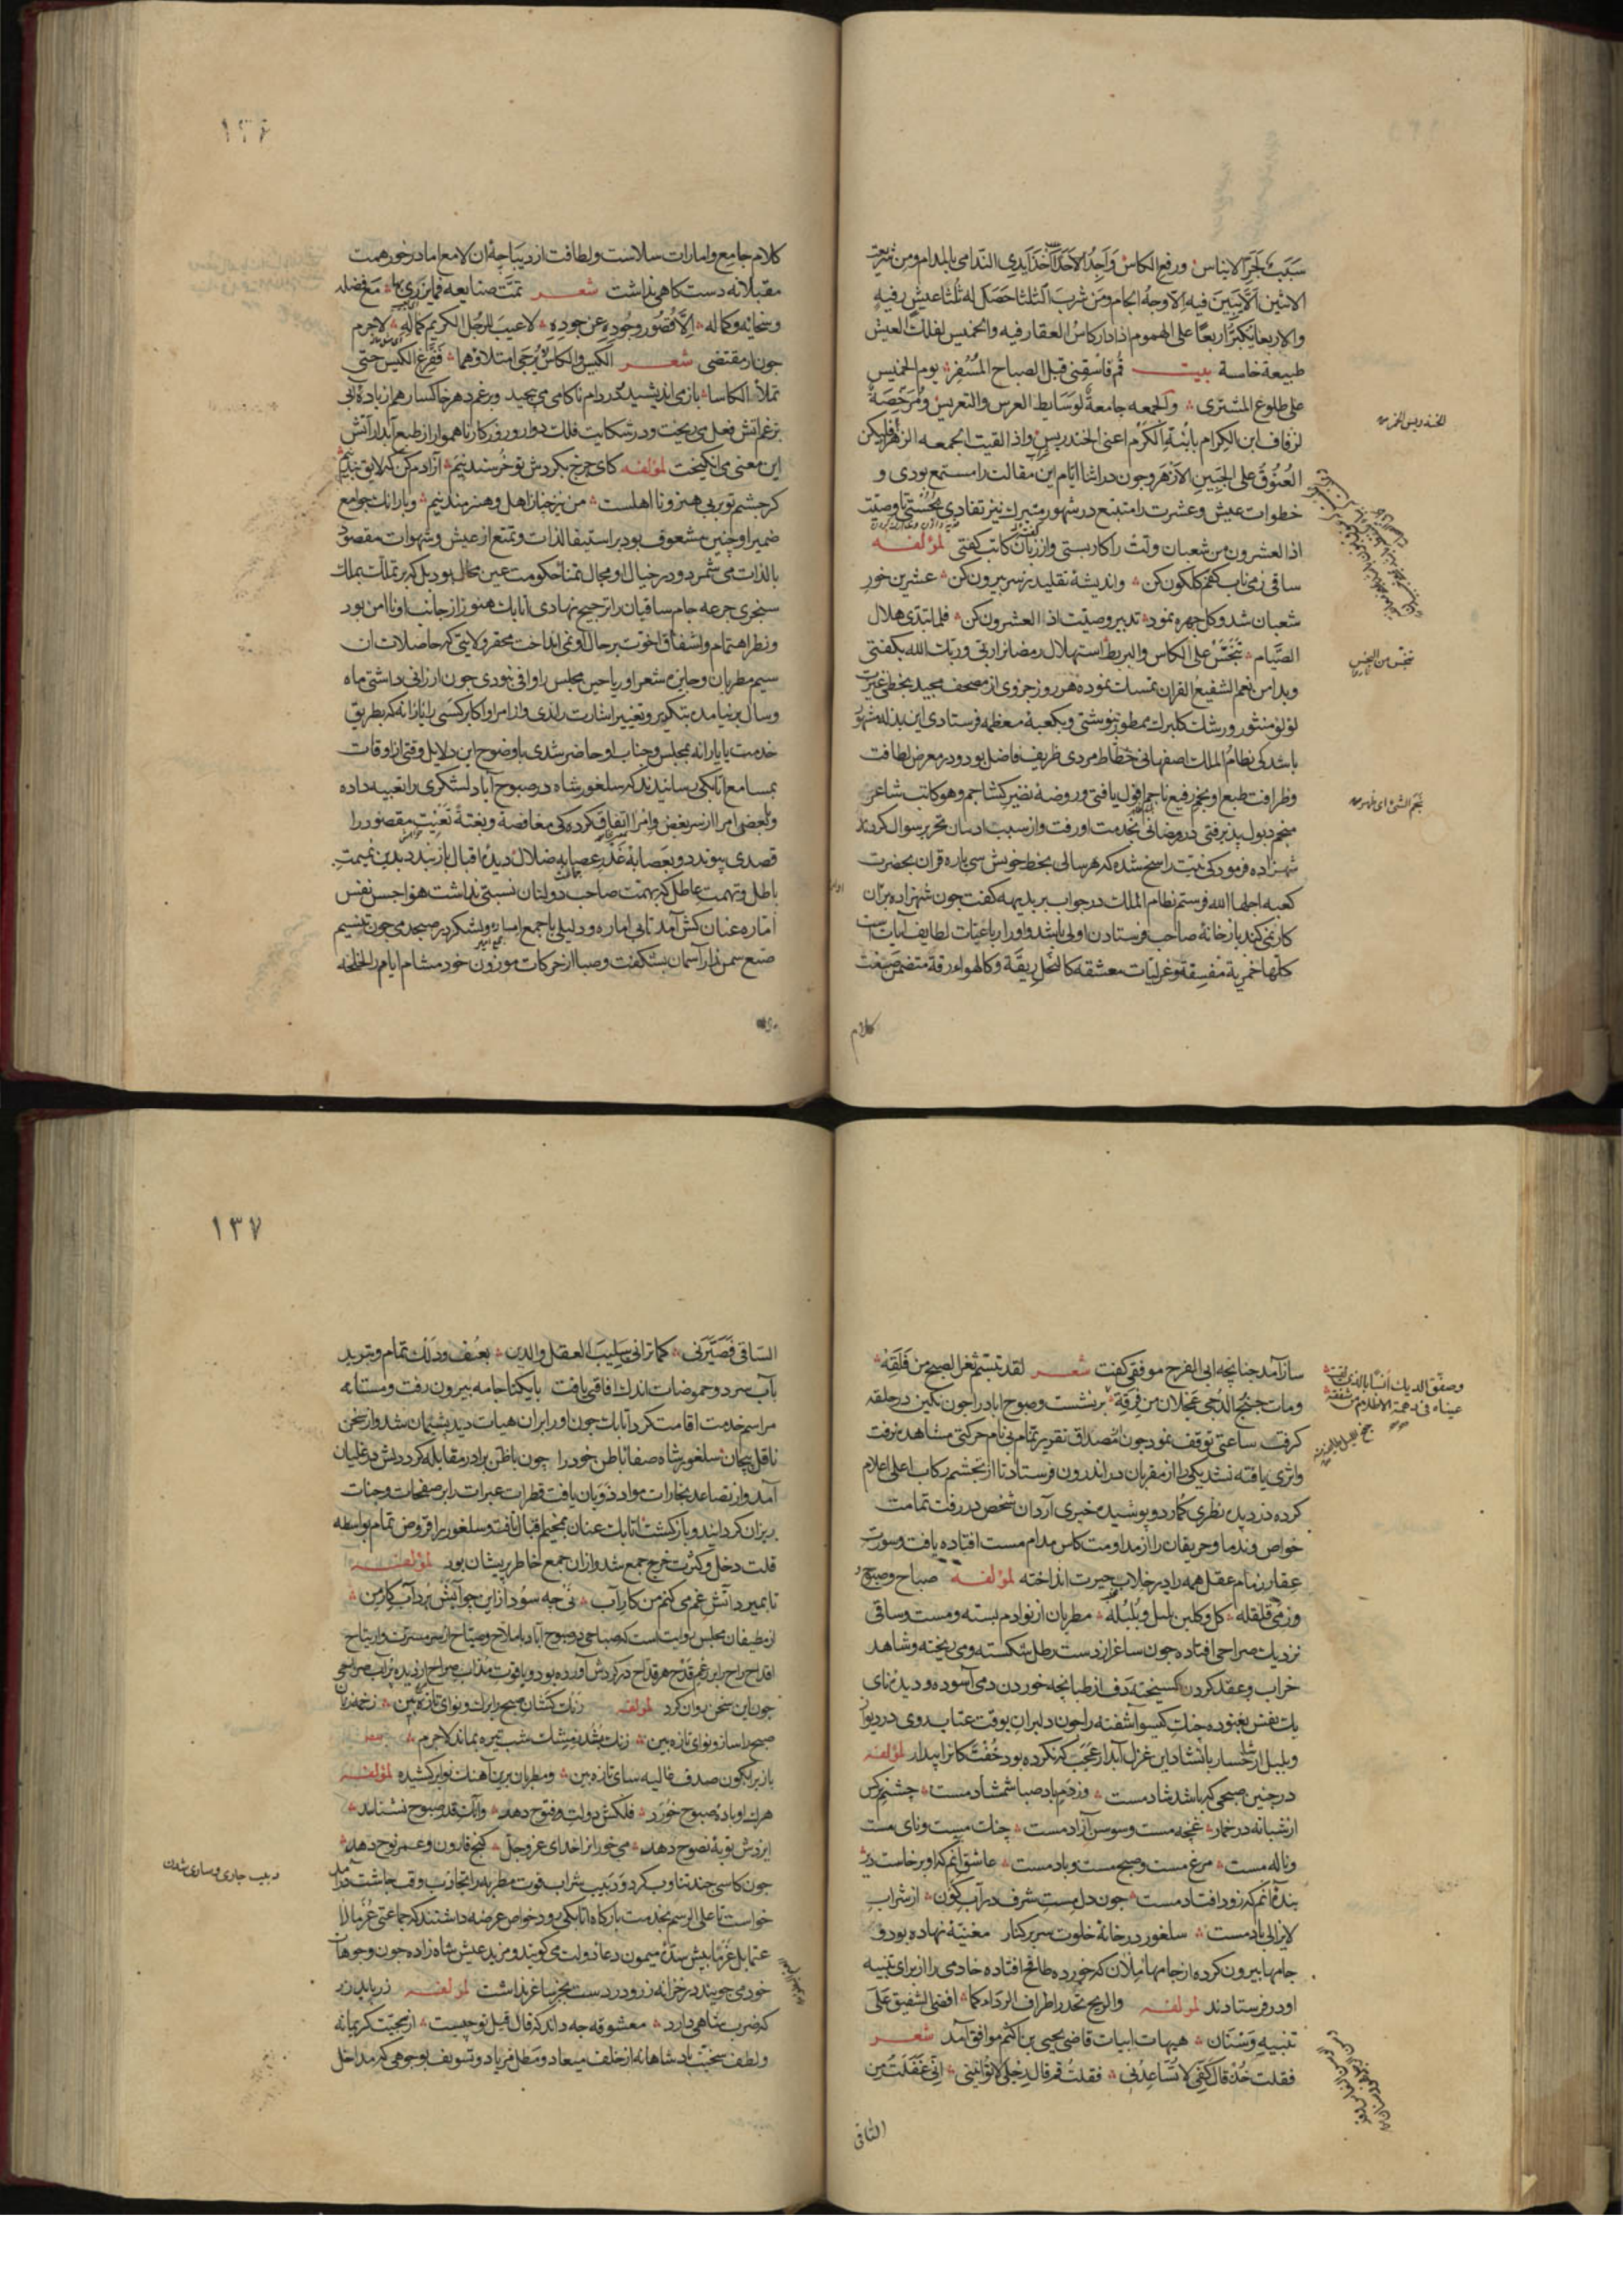 سبب لجر الایناس ورفع الکاس واجد الاحد اخذ ایدی الندامی بالمدام ومن شریعة
الاثنین الا یبین فیه الا وجه الجام ومن شرب الثلثا حصل له ثلثا عیش رفیه
والاربعا یکبر اربعا علی الهموم اذا دار کاس العقار فیه والخمیس لفلک العیش
طبیعة خامسة بیت قم فاسقنی قبل الصباح المسفر یوم الخمیس
علی طلوع المشتری والجمعه جامعة لوسایط العرس والتعریس ومرخصة
لزفاف ابن الکرام بابنة الکرم اعنی الخندریس واذا لقیت الجمعه الزهرا فلیکن
الغبوق علی الجبین الازهر وجون در اثنا ایام این مقالت را مستمع بودی و
خطوات عیش وعشرت را متتبع در شهور متبرک نیز تفادی نجستی تا وصیت
اذا العشرون من شعبان ولت را کار بستی واز زبان کاتب کفتی لمؤلفه
ساقی زمی ناب کفم کلکون کن واندیشهٔ تقلید ز سر بیرون کن عشرین خور
شعبان شد وکل جهره نمود تدبیر وصیت اذا العشرون کن فلما تبدی هلال
الصیام علی الکاس والبربط استهلال رمضان را ربی وربک الله بکفتی
وبدامن نعم الشفیع القران تمسک نموده هر روز جزوی از مصحف مجید بخطی غیرت
لولو منثور ورشک کلبرک ممطور بنوشتی وبکعبهٔ معظمه فرستادی این بذله مشهور
باشد کی نظام الملک اصفهانی خطاط مردی ظریف فاضل بود ودر معرض لطافت
وظرافت طبع او نجم رفیع ناجم افول یافتی وروضهٔ نضیر کشاجم وهو کاتب شاعر
منجم ذبول پذیرفتی در رمضانی بخدمت او رفت واز سبب ادمان تحریر سوال کردند
شهزاده فرمود کی نیت راسخ شده که هر سالی بخط خویش سی پاره قران بحضرت
کعبه اجلها الله فرستم نظام الملک در جواب بر بدیهه کفت جون شهزاده بران
کار نمی کند باز خانهٔ صاحب فرستادن اولی باشد واو را رباعیات لطایف آیات است
کلها خمریة مفسقة وغزلیات معشقه کالنحل ریقة وکالهواء رقة متضمن صنعت
کلام
الخندریس الخمر
تنحس من النحس
نجم الشیء ای ظهر
۱۳۶
کلام جامع وامارات سلاست ولطافت از دیباجهٔ ان لامع اما در خور همت
مقبلانه دستکاهی نداشت شعر تمت صنایعه فما یزری بها مع فضله
وسخایه وکماله الا قصور وجوده عن جوده لا عیب للرجل الکریم کماله لاجرم
جون از مقتضی شعر الکیس والکاس یرجی امتلاؤهما ففرغ الکیس حتی
تملأ الکاسا بازمی اندیشید در دام ناکامی می بیجید ورغم دهر خاکسار هم از بادهٔ آبی
بر غم اتش فعل می ریخت ودر شکایت فلک دوار وروزکار ناهموار از طبع آبدار آتش
این معنی می انکیخت لمؤلفه کای جرخ بکردش تو خرسند نیم آزادم کن که لایق بند نیم
کر جشم تو بر بی هنر ونا اهلست من نیز جنان اهل وهنرمند نیم وباز انک جوامع
ضمیر او جنین مشعوف بود بر استیفا لذات وتمتع از عیش وشهوات مقصود
بالذات می شمرد ودر خیال او مجال تمنا حکومت عین محال بود بل که بر تملک بملک
سنجری جرعه جام ساقیان را ترجیح نهادی اتابک هنوز از جانب او نا امن بود
ونظر اهتمام واشفاق اخوت بر حال او نمی انداخت محقر ولایتی که حاصلات ان
سیم مطربان وجایزهٔ شعرا وریاحین مجلس را وافی نبودی جون ارزانی داشتی ماه
وسال بر نیامده بتکویر وتغییر اشارت راندی واز امرا واکابر کسی را یارا نه که بطریق
خدمت یا یارانه بمجلس وجناب او حاضر شدی با وضوح این دلایل وقتی از اوقات
بمسامع اتابکی رسانیدند که سلغور شاه در صبوح آباد لشکری را تعبیه داده
وبعضی امرا از سر بغض وامرا اتفاق کرده کی مغافصة وبغتة تغبیت مقصور را
قصدی پیوندد وبعصابهٔ غدر عصابه ضلال دیدهٔ اقبال باز بندد بدین نمیمت
باطل وتهمت عاطل که بهمت صاحب دولتان نسبتی نداشت هواجس نفس
امّاره عنان کش آمد تا بی اماره ودلیلی با جمع امرا ولشکر بر صبحدمی جون تنسیم
صنع سمن زار آسمان بشکفت وصبا از حرکات موزون خود مشام ایام را لخلخه
ساز آمد جنانجه ابی الفرج موفقی کفت شعر لقد تبسم ثغر الصبح من فلقه
ومات جنح الدجی عجلان من فرقه بر نشست وصبوح اباد را جون نکین در حلقه
کرفت ساعتی توقف نمود جون مصداق تقریر تمام بی نام حرکتی مشاهده نرفت
واثری یافته نشد یکی را از مقربان در اندرون فرستاد تا از تجشم رکاب اعلی اعلام
کرده دزدیده نظری کمارد وپوشیده خبری آرد ان شخص در رفت تمامت
خواص وندما وحریفان را از مداومت کاس مدام مست افتاده یافت وسورت
عقار زمام عقل همه را در خلاب حیرت انداخته لمؤلفه صباح وصبوح
وز می قلقله کل وکلبن بلبل وبلبله مطربان از نوا دم بسته ومست وساقی
نزدیک صراحی افتاده جون ساغر از دست رطل شکسته ومی ریخته وشاهد
خراب وعقد کردن کسیخته دف از طبانجه خوردن دمی آسوده ودیدهٔ نای
یک نفس بغنوده جنک کیسو آشفته را جون دلبران بوقت عتاب روی در دیوار
وبلبل از شاخسار بانشاد این غزل آبدار عجب که نکرده بود خفتکانرا بیدار لمؤلفه
در جنین صبحی که باشد شاد مست وزدم باد صبا شمشاد مست جشم نرکس
از شبانه در خمار غنجه مست وسوسن آزاد مست جنک مست ونای مست
وناله مست مرغ مست وصبح مست وباد مست عاشق آنم که او برخاست دیر
بندهٔ آنم که زود افتاد مست جون دل مست شرف در آب کون از شراب
لایزالی باد مست سلغور در خانهٔ خلوت سر بر کنار مغنیهٔ نهاده بود و
جامها بیرون کرده از جامها مالامال که خورده طافح افتاده خادمی را از برای تنبیه
او در فرستادند لمؤلفه والریح تحدر اطراف الرداء کما افضی الشفیق علی
تنبیه وسنان هیهات ابیات قاضی یحیی بن اکثم موافق آمد شعر
فقلت خذ قال کفی لا تساعدنی فقلت قم قال رجلی لا تواتینی انی غفلت من
الساقی
وصفق الدیک
۱۳۷
الساقی فصیرنی کما ترانی سلیب العقل والدین بعنف ودلک تمام وتبرید
بآب سرد وحموضات اندک افاقتی یافت بایکتا جامه بیرون رفت ومستانه
مراسم خدمت اقامت کرد اتابک جون او را بران هیات دید پشیمان شد واز سخن
ناقل پیجان سلغور شاه صفا باطن خود را جون باظن برادر مقابله کرد دلش در غلیان
آمد واز تصاعد بخارات مواد ذوبان یافت قطرات عبرات را بر صفحات وجنات
ریزان کردانید وباز کشت اتابک عنان بمخیم اقبال تافت وسلغور را قروض تمام بواسطه
قلت دخل وکثرت خرج جمع شد وازان جمع خاطر پریشان بود لمؤلفه
تا بمیرد آتش غم می کنم من کار آب نی جه سود از این جو آتش برد آب کار من
از مطیفان مجلس روایت است که صباحی در صبوح آباد با ملاح وصباح از سر مسرت وارتیاح
اقداح راح را بر رغم قدح هر قداح در کردش آورده بود ویاقوت مذاب صراح از دیده پرآب صراحی
جون این سخن روان کرد لمؤلفه زنک کشان صبح را برک ونوای تازه بین زخمه زنان
صبح را ساز ونوای تازه بین زنک بشد ز مشک شب تیره بماند لاجرم
باز بر آبکون صدف غالیه سای تازه بین ومطربان برین آهنک نوا بر کشیده لمؤلفه
هرک او بادهٔ صبوح خورد فلکش دولت وفتوح دهد وانک قدر صبوح نشناسد
ایزدش توبهٔ نصوح دهد می خور از خدای عز وجل کنج قارون وعمر نوح دهد
جون کاسی جند تناوب کرد ودبیب شراب قوت مطربه را تجاذب وقت جاشت درآمد
خواست تا علی الرسم بخدمت بارکاه اتابکی رود خواص عرضه داشتند که جماعتی غرما را
عتما بل غرما بپیش سدهٔ میمون دعا دولت می کویند ومزید عیش شاه زاده جون وجوهات
خود می جویند در خزانه زر ودر دست بجز ساغر نداشت لمؤلفه زر باید زر
که ضرب شاهی دارد معشوقه جه داند که قال قیل تو جیست از سجیت کریمانه
ولطف سخیت پادشاهانه از خلف میعاد ومطل فریاد وتسویف بوجوهی که مداخل
دبیب جاری وساری شدن